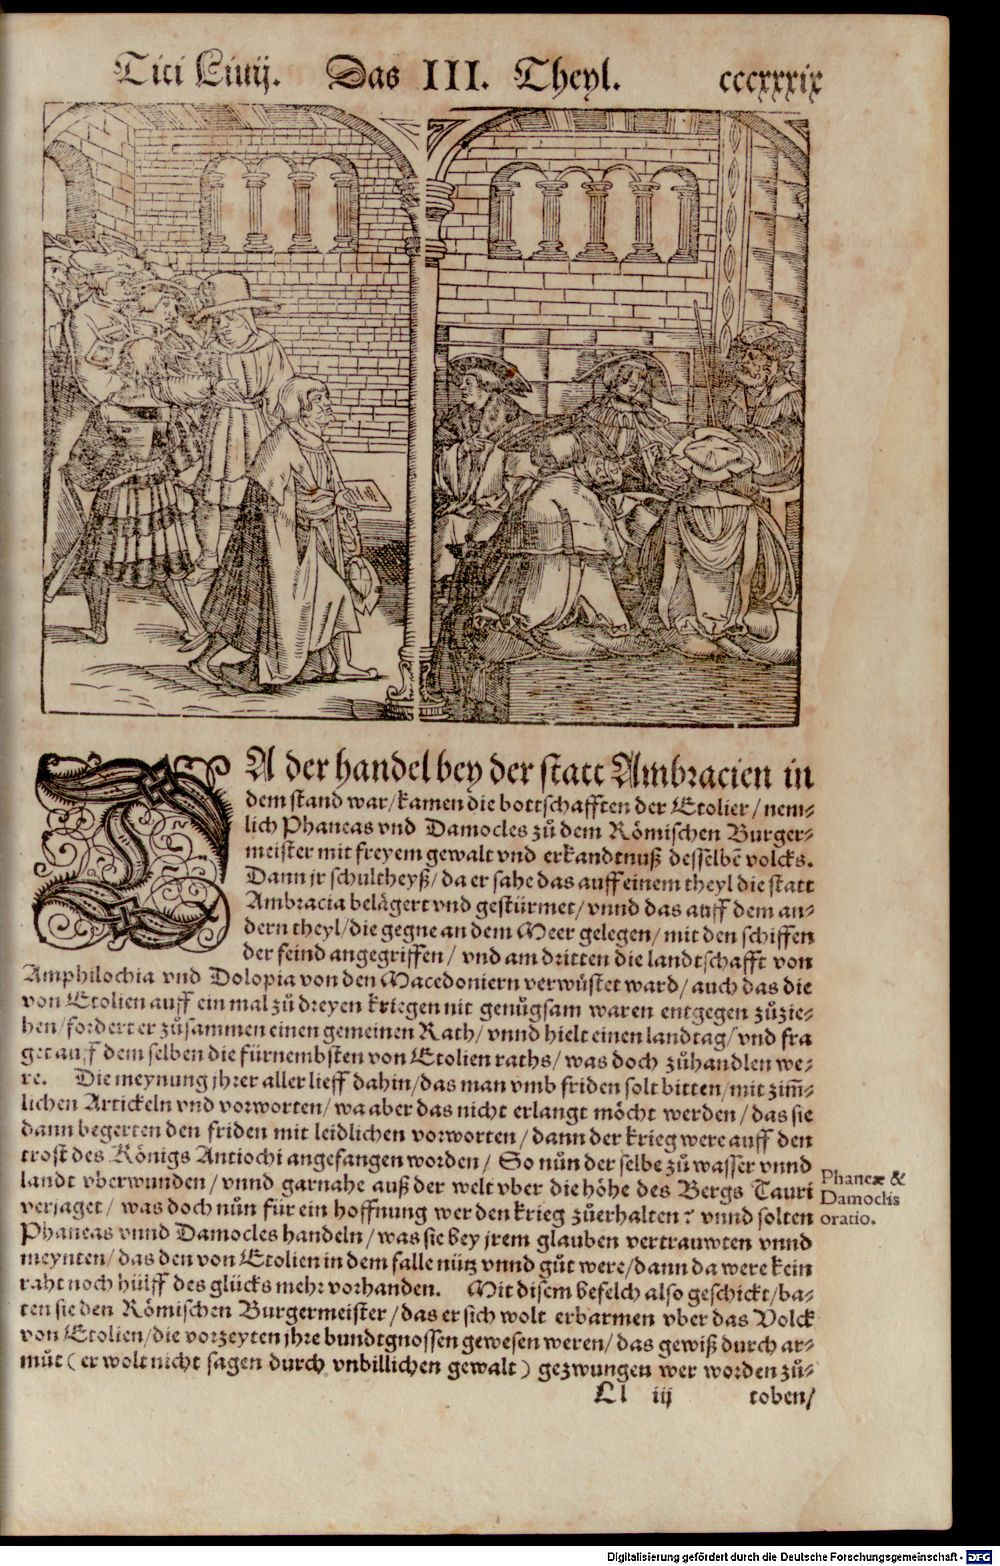 Titi Liuij. Das III. Theyl. cccxxxix
DA der handel bey der statt Ambracien in
dem stand war/kamen die bottschafften der Etolier/nem-
lich Phaneas vnd Damocles zů dem Römischen Burger-
meister mit freyem gewalt vnd erkandtnuß desselbē volcks.
Dann jr schultheyß/da er sahe das auff einem theyl die statt
Ambracia belägert vnd gestürmet/vnnd das auff dem an-
dern theyl/die gegne an dem Meer gelegen/mit den schiffen
der feind angegriffen/vnd am dritten die landtschafft von
Amphilochia vnd Dolopia von den Macedoniern verwüstet ward/auch das die
von Etolien auff ein mal zů dreyen kriegen nit genůgsam waren entgegen zůzie-
hen/fordert er zůsammen einen gemeinen Rath/vnnd hielt einen landtag/vnd fra
get auff dem selben die fürnembsten von Etolien raths/was doch zůhandlen we-
re. Die meynung jhrer aller lieff dahin/das man vmb friden solt bitten/mit zim̃-
lichen Artickeln vnd vorworten/wa aber das nicht erlangt möcht werden/das sie
dann begerten den friden mit leidlichen vorworten/dann der krieg were auff den
trost des Königs Antiochi angefangen worden/So nůn der selbe zů wasser vnnd
landt vberwunden/vnnd garnahe auß der welt vber die höhe des Bergs Tauri
verjaget/was doch nůn für ein hoffnung wer den krieg zůerhalten? vnnd solten
Phaneas vnnd Damocles handeln/was sie bey jrem glauben vertrauwten vnnd
meynten/das den von Etolien in dem falle nütz vnnd gůt were/dann da were kein
raht noch hülff des glücks mehr vorhanden. Mit disem befelch also geschickt/ba-
ten sie den Römischen Burgermeister/das er sich wolt erbarmen vber das Volck
von Etolien/die vorzeyten jhre bundtgnossen gewesen weren/das gewiß durch ar-
můt (er wolt nicht sagen durch vnbillichen gewalt) gezwungen wer worden zů-
Ll iij toben/
Phaneæ &
Damoclis
oratio.
Digitalisierung gefördert durch die Deutsche Forschungsgemeinschaft - DFG